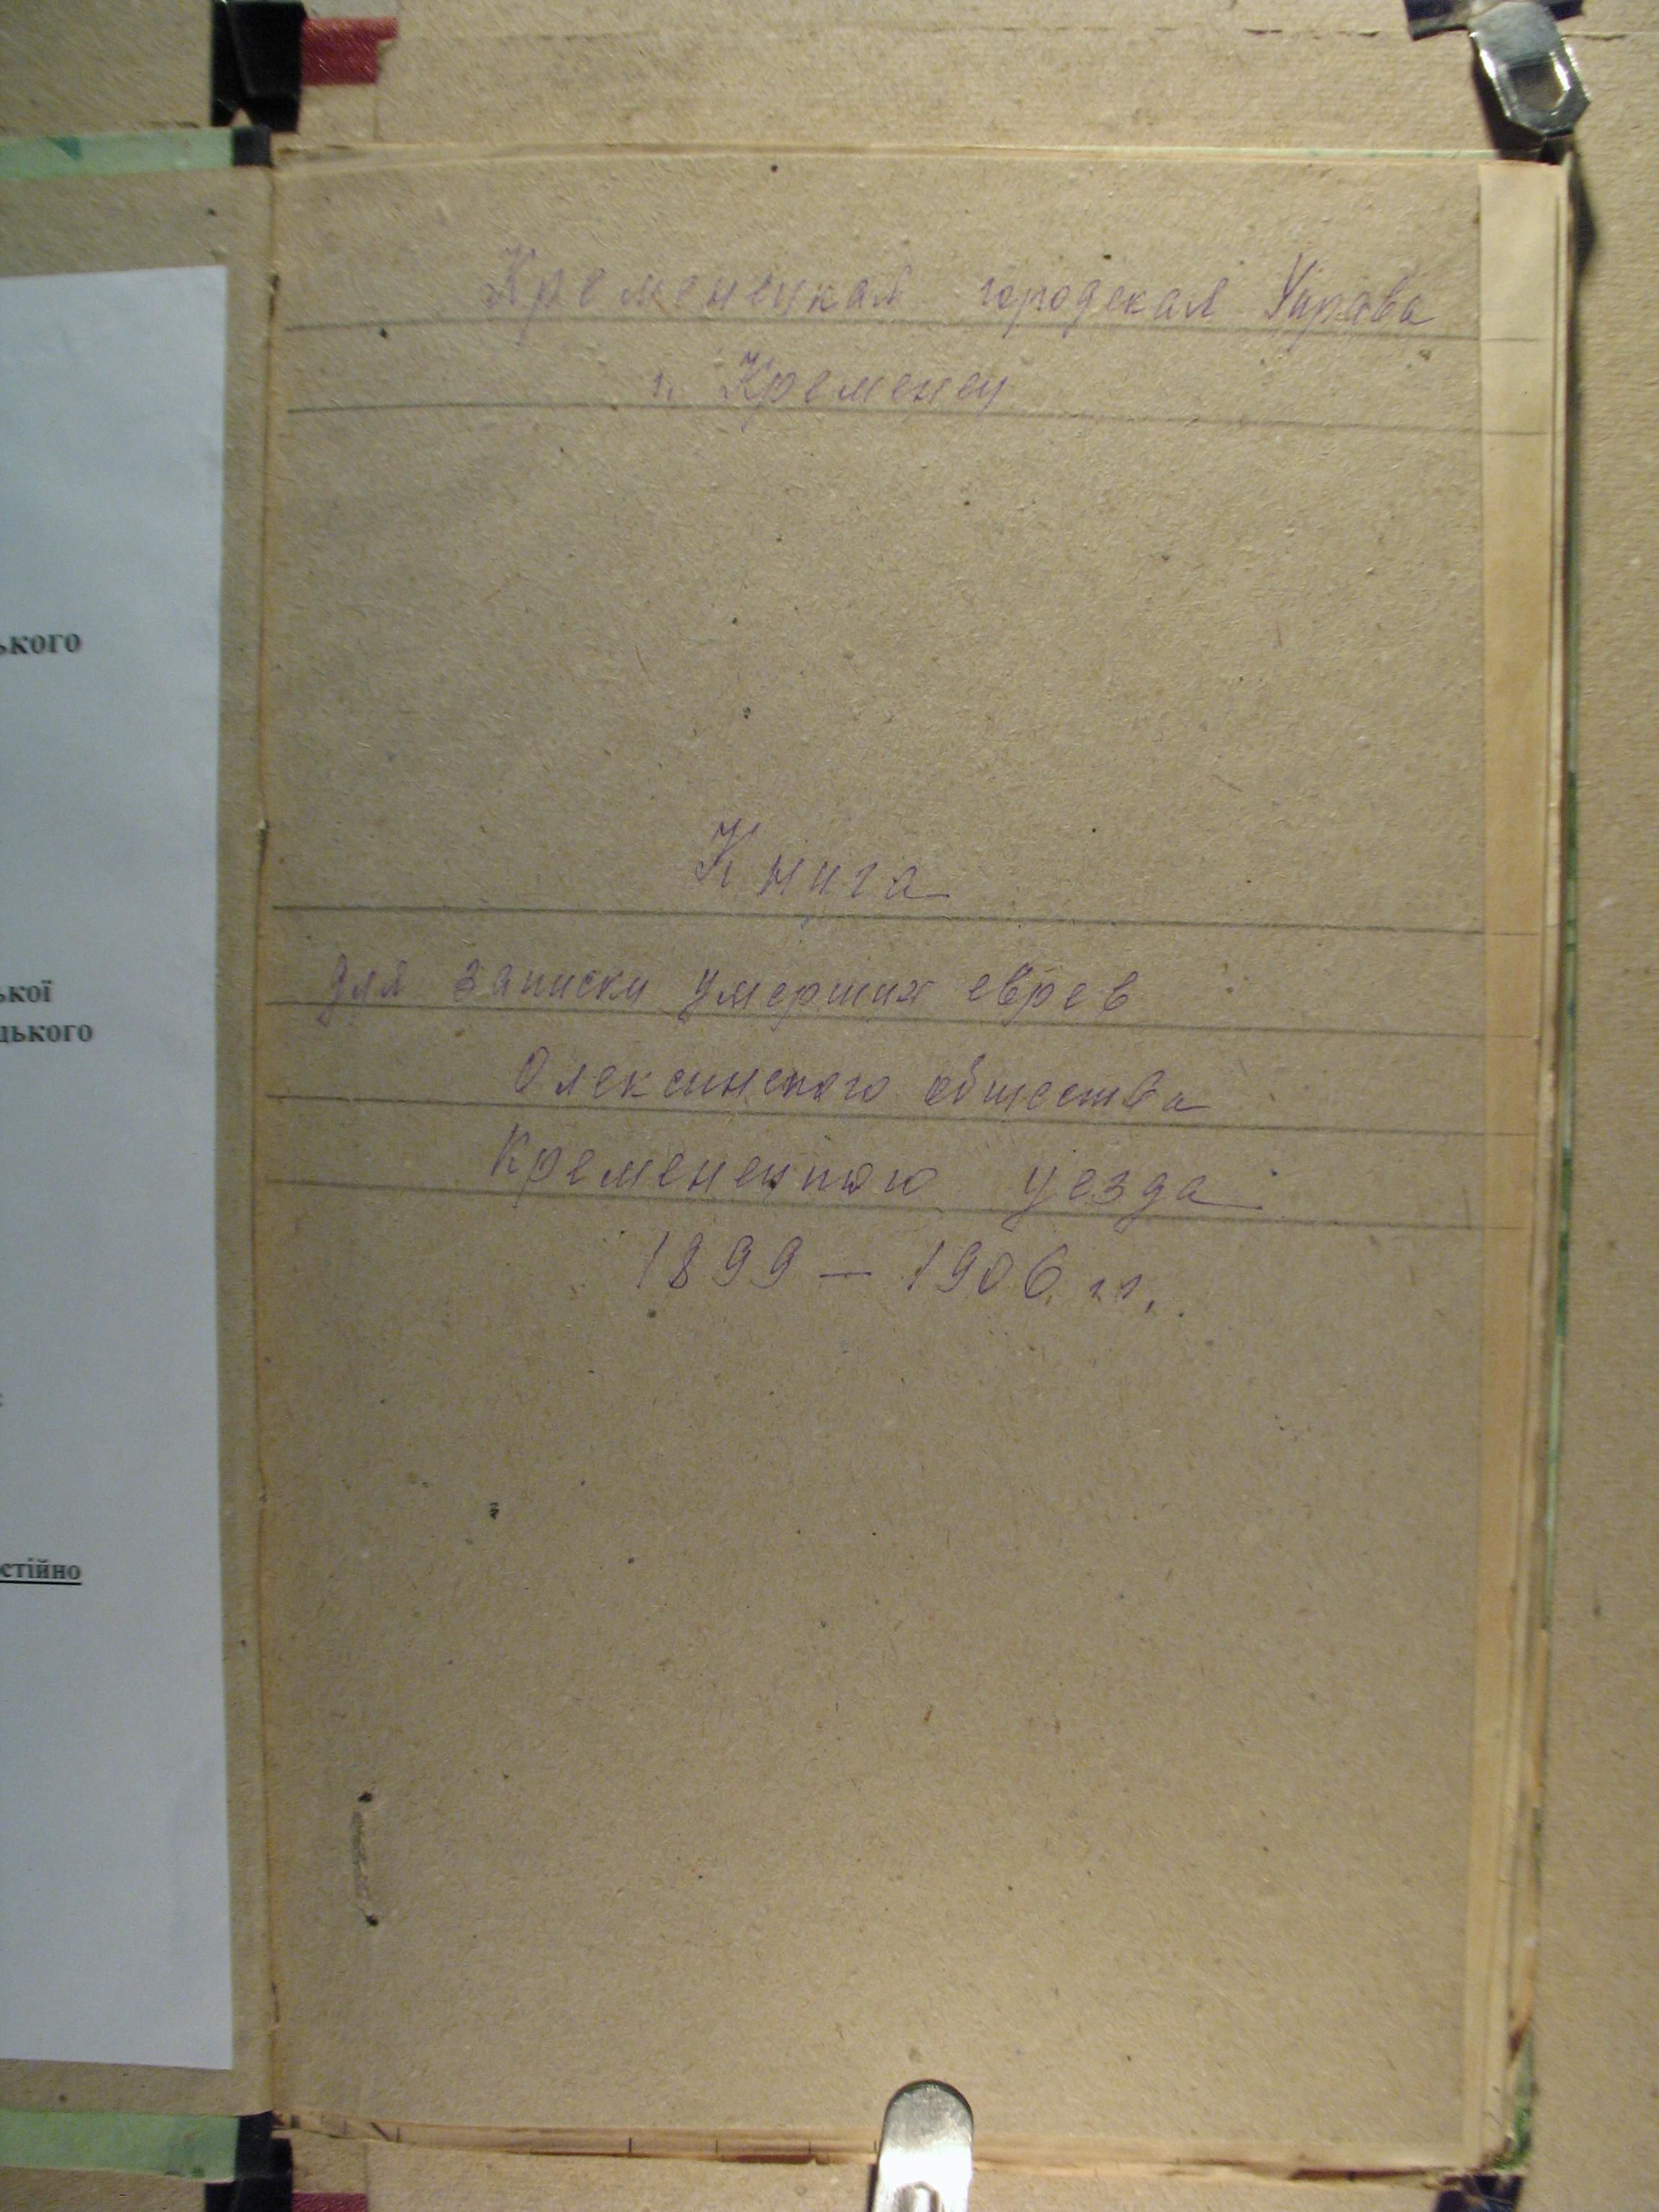 ького
ької
цького
стійно
Кременецкая городская Управа
г. Кременец
Книга
для записки умерших еврев
Олексинского общества
Кременецкого уезда
1899 — 1906 гг.